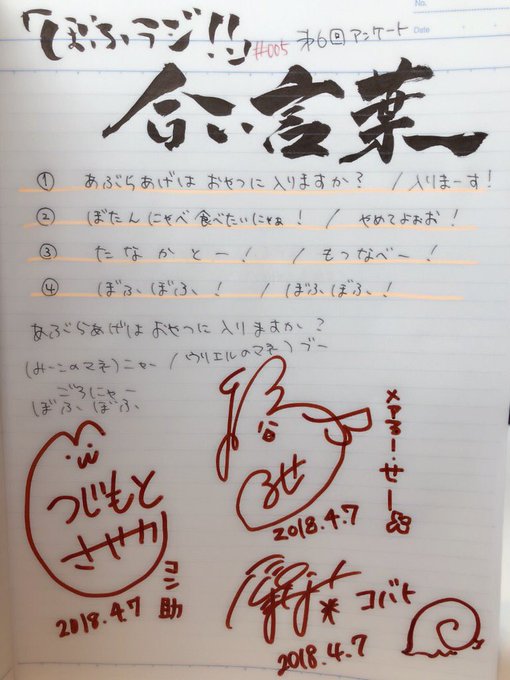 「ぼふラジ!!」 #005 第6回アンケート
No.
Date
合い言葉
① あぶらあげは おやつに入りますか? / 入りまーす!
② ぼたんにゃべ 食べたいにゃぁ! / やめてよぉお!
③ たなかとー! / もつなべー!
④ ぼふ、ぼふ、! / ぼふぼふ、!
あぶらあげは おやつに 入りますか?
(みーこのマネ)ニャー / ウリエルのマネ) ブー
ごろにゃー
ぼふ、ぼふ、
つじもと
さやか
コン助
2018.4.7
るせ
2018.4.7
コバト
2018.4.7